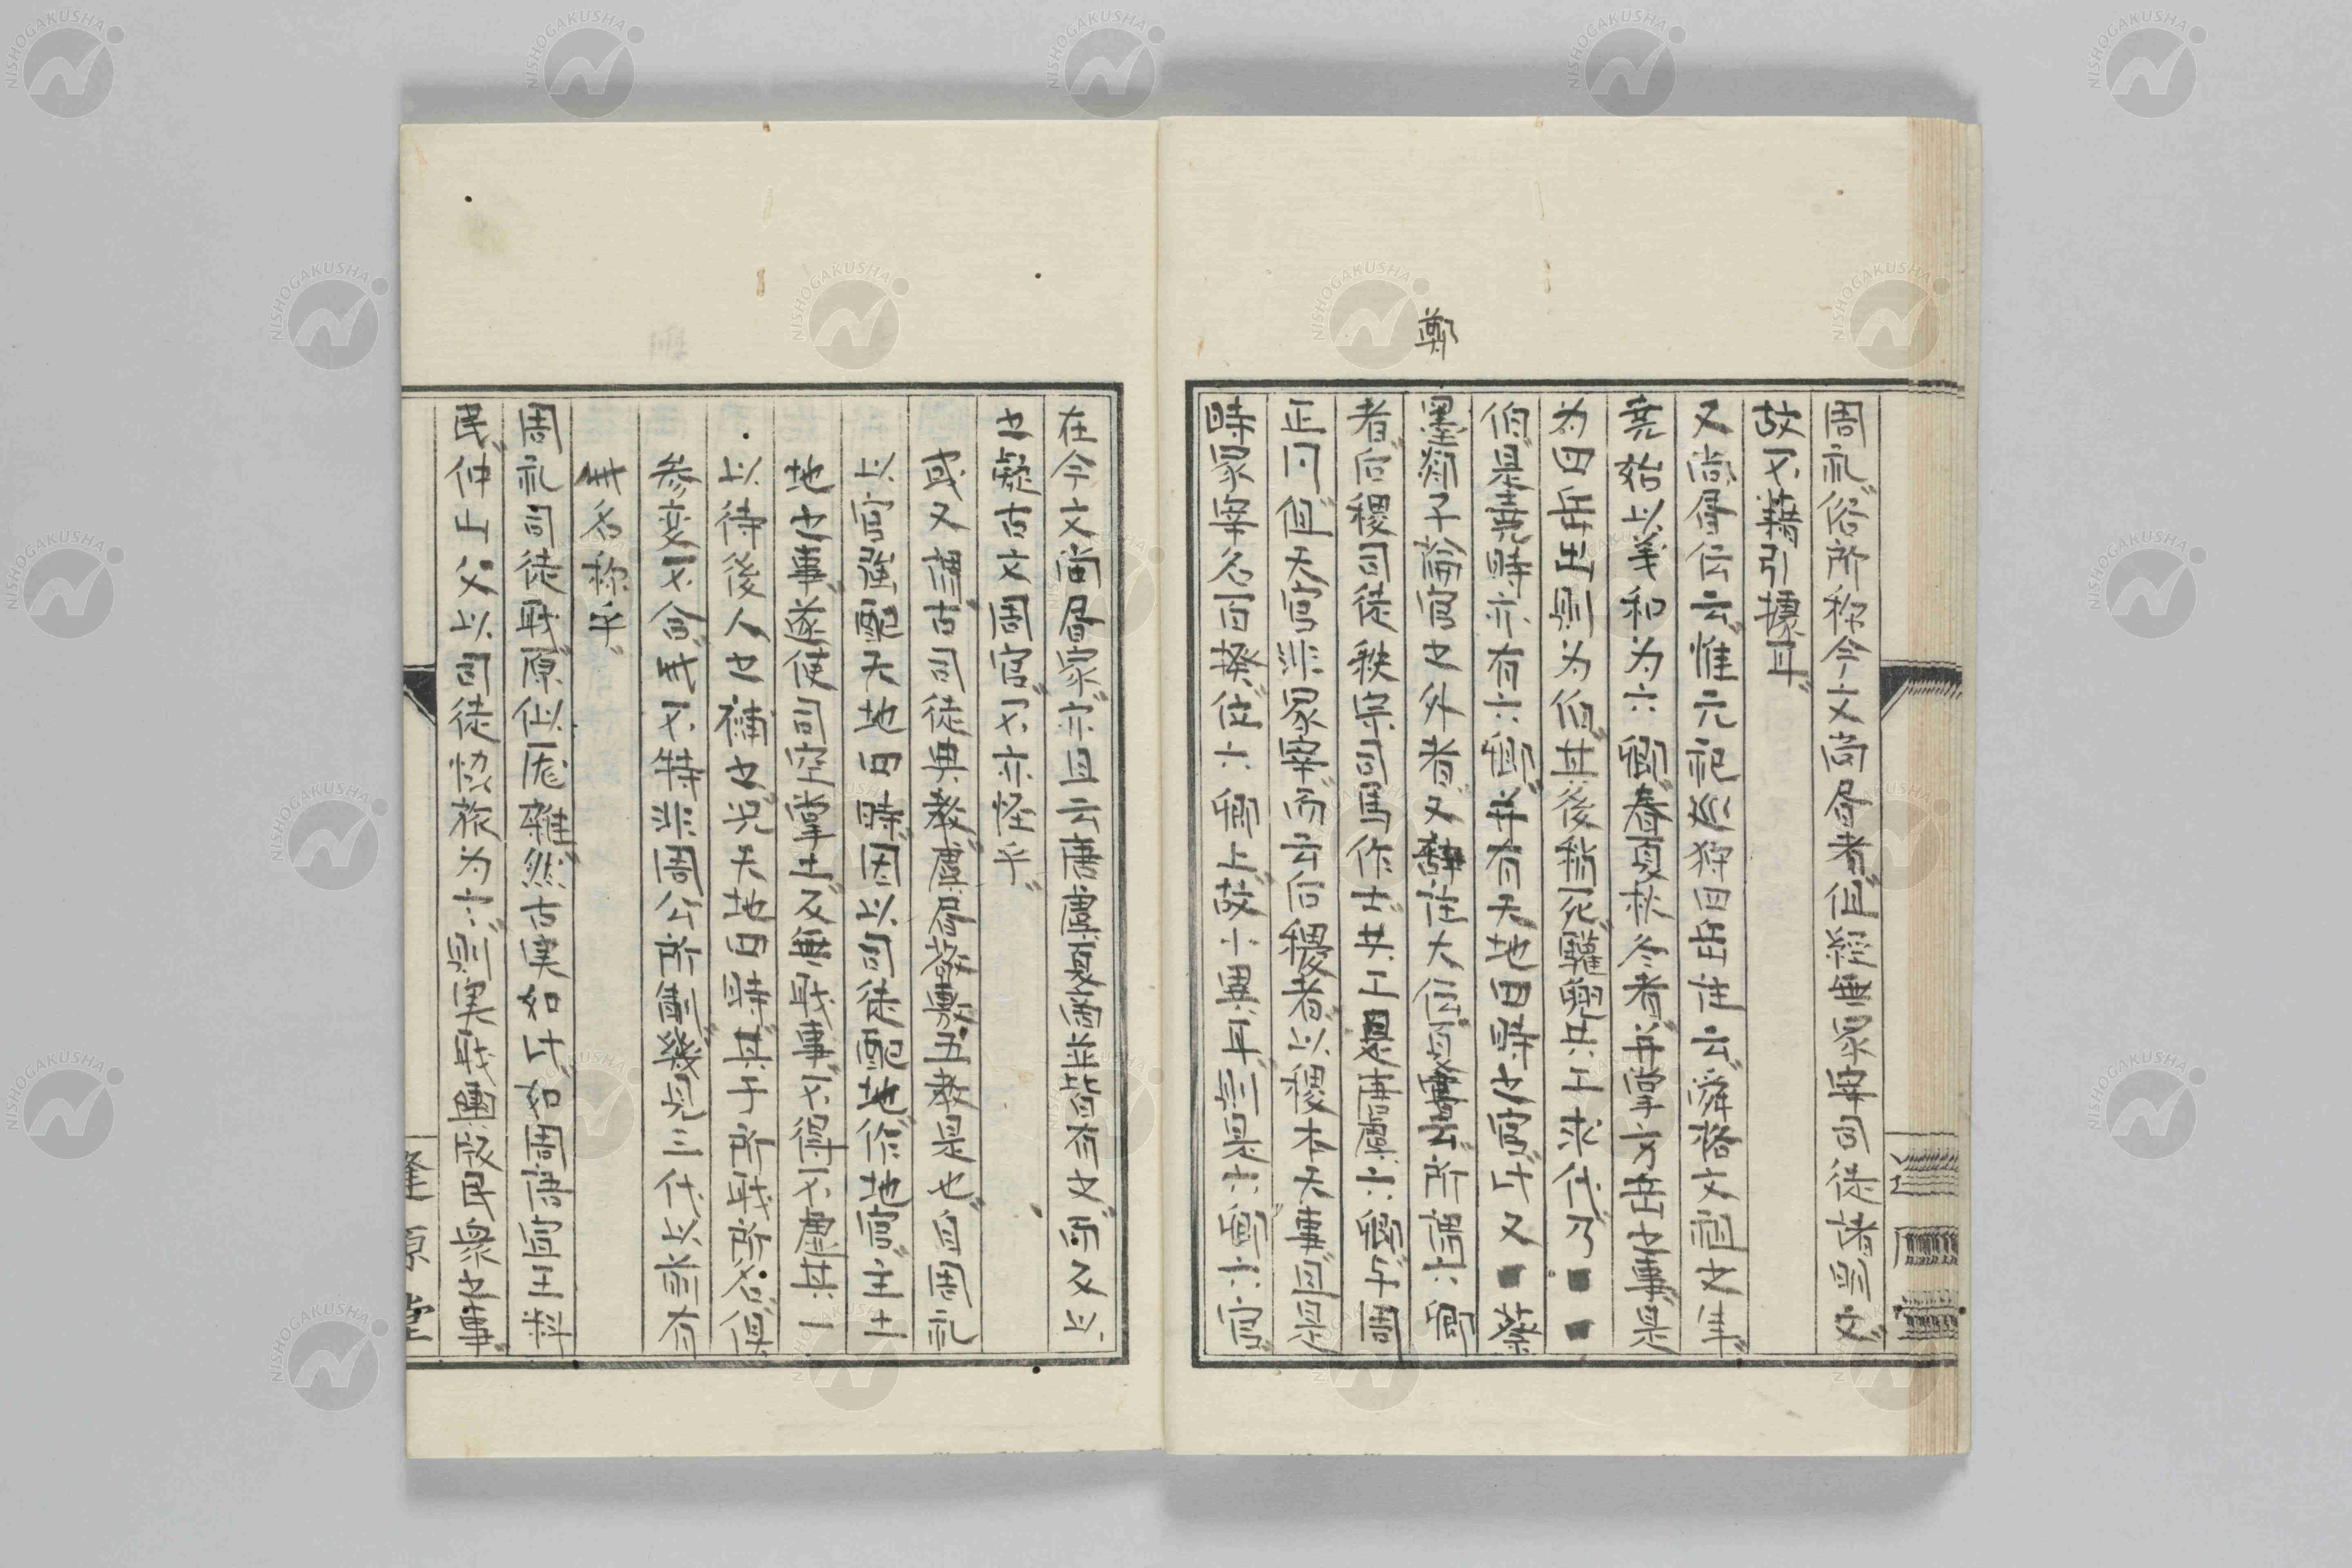 周礼俗所称今文尚書者但経無冢宰司徒諸司文
故不藉引據耳
又尚書伝云惟元祀巡狩四岳注云舜格文祖之年
堯始以羲和为六卿春夏秋冬者并掌方岳之事是
为四岳出則为伯其後稍死驩兜共工求代乃■■■
伯是堯時亦有六卿并有天地四時之官此又■葉
鄭
墨
子論官之外者又
注大伝夏書所謂六卿
者后稷司徒秩宗司馬作士共工是唐虞六卿与周
正同但天官非冢宰而云后稷者以稷本天事
時冢宰名百揆
在六卿上故小異耳則是六卿六官
在今文尚書家
且云唐虞夏商並皆有之而又以
之疑古文周官不亦怪乎
或又謂古司徒典教虞書敬敷五教是也自周礼
以官強配天地四時因以司徒配地作地官主土
地之事遂使司空掌土反無職事不得不虞其一
以待後人之補之况天地四時其于所職所名俱
参差不合此不特非周公所制幾見三代以前有
此名称乎
周礼司徒職原似厖雜然古実如此如周語宣王料
民仲山父以司徒協旅为言則実職
民衆之事